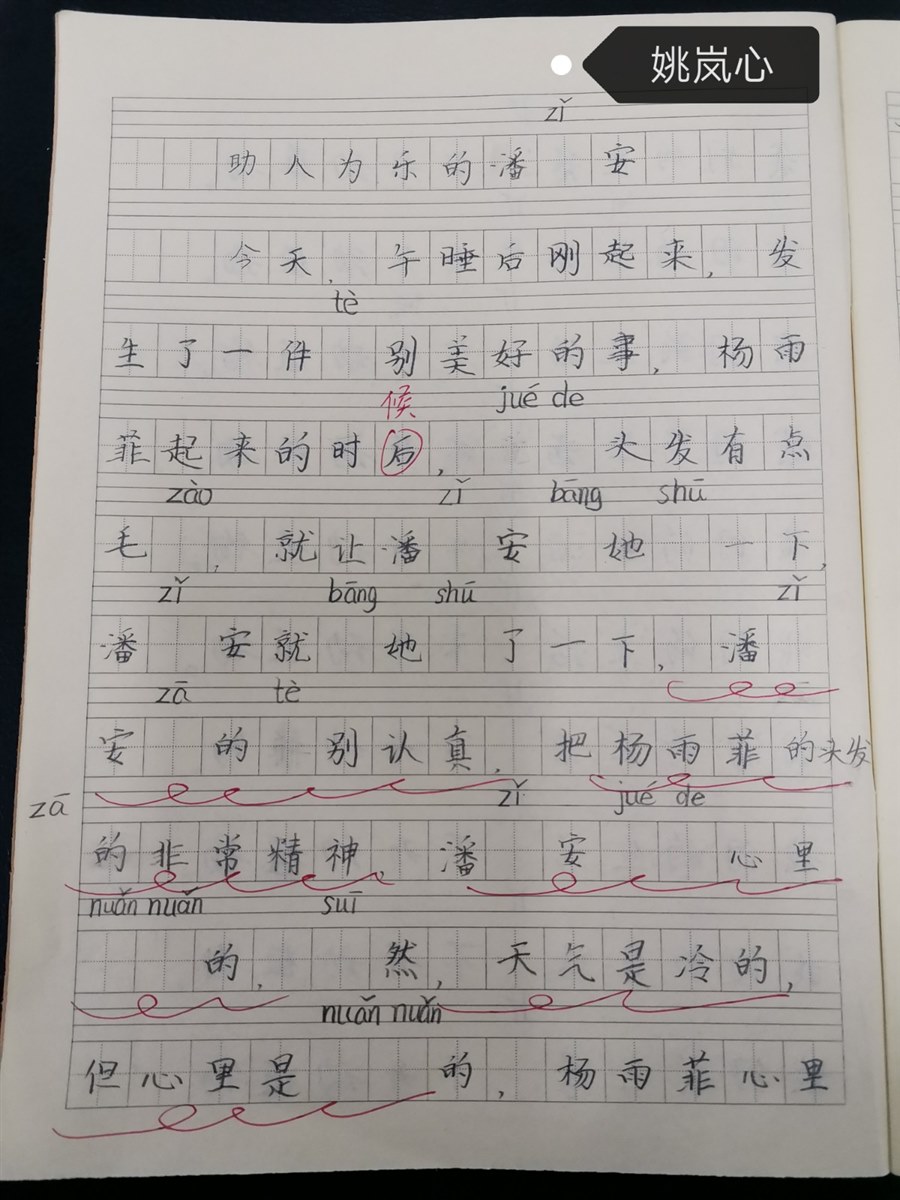 姚岚心
zǐ
助人为乐的潘 安
今天,午睡后刚起来,发
tè
生了一件 别美好的事,杨雨
候 jué de
菲起来的时后, 头发有点
zào zǐ bāng shū
毛 ,就让潘 安 她 一下,
zǐ bāng shū zǐ
潘 安就 她 了一下,潘
zā tè
安 的 别认真,把杨雨菲的头发
zā zǐ jué de
的非常精神,潘 安 心里
nuǎn nuǎn suī
的, 然,天气是冷的,
nuǎn nuǎn
但心里是 的,杨雨菲心里